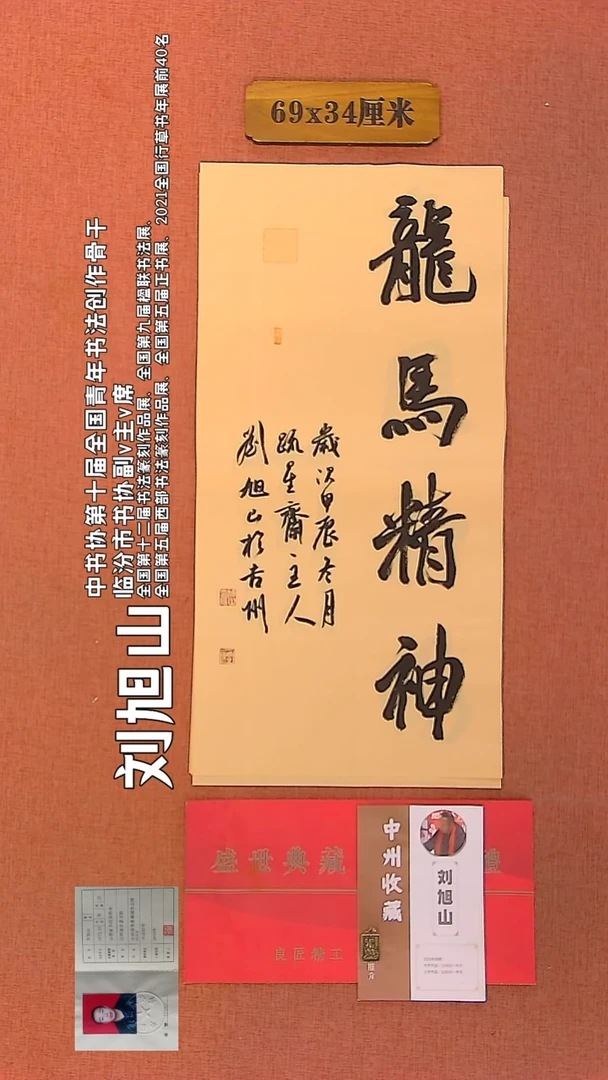 69x34厘米
龍馬精神
歲次甲辰冬月
疏星齋主人
劉旭山於古州
刘旭山
中书协第十届全国青年书法创作骨干
临汾市书协副v主v席
全国第十二届书法篆刻作品展、全国第九届楹联书法展、
全国第五届西部书法篆刻作品展、全国第五届正书展、2021全国行草书年展前40名
盛世典藏
禮
良匠精工
中州收藏
刘旭山